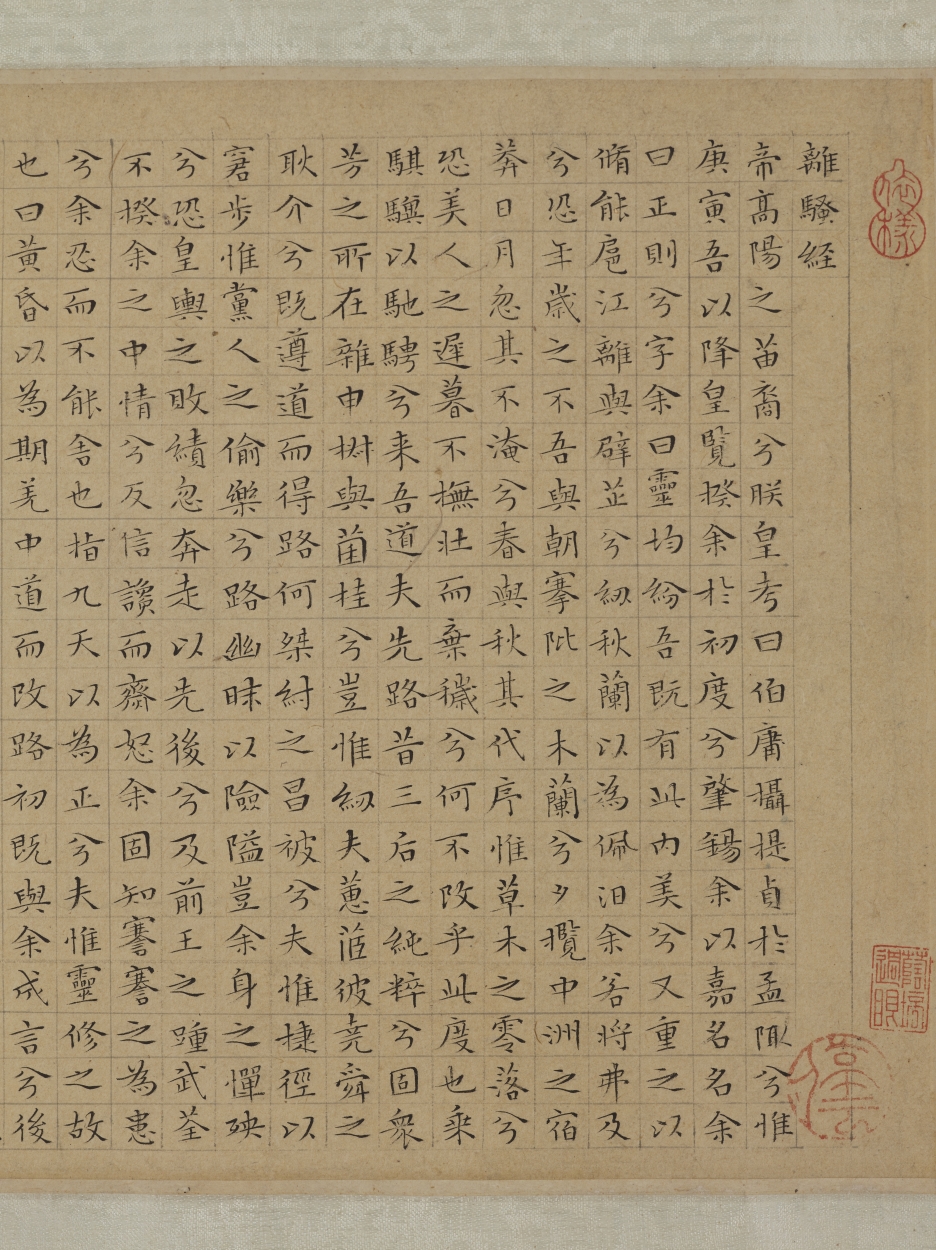 離騷経
帝高陽之苗裔兮朕皇考曰伯庸攝提貞於孟陬兮惟
庚寅吾以降皇覽揆余於初度兮肇錫余以嘉名名余
曰正則兮字余曰靈均紛吾既有此內美兮又重之以
脩能扈江離與辟芷兮紉秋蘭以為佩汨余若將弗及
兮恐年歲之不吾與朝搴阰之木蘭兮夕攬中洲之宿
莽日月忽其不淹兮春與秋其代序惟草木之零落兮
恐美人之遲暮不撫壯而棄穢兮何不改乎此度也乘
騏驥以馳騁兮来吾道夫先路昔三后之純粹兮固衆
芳之所在雜申椒與菌桂兮豈惟紉夫蕙茝彼堯舜之
耿介兮既遵道而得路何桀紂之昌被兮夫惟捷徑以
窘步惟黨人之偷樂兮路幽昧以險隘豈余身之憚殃
兮恐皇輿之敗績忽奔走以先後兮及前王之踵武荃
不揆余之中情兮反信讒而齌怒余固知謇謇之為患
兮余忍而不能舍也指九天以為正兮夫惟靈修之故
也曰黃昏以為期羌中道而改路初既與余成言兮後